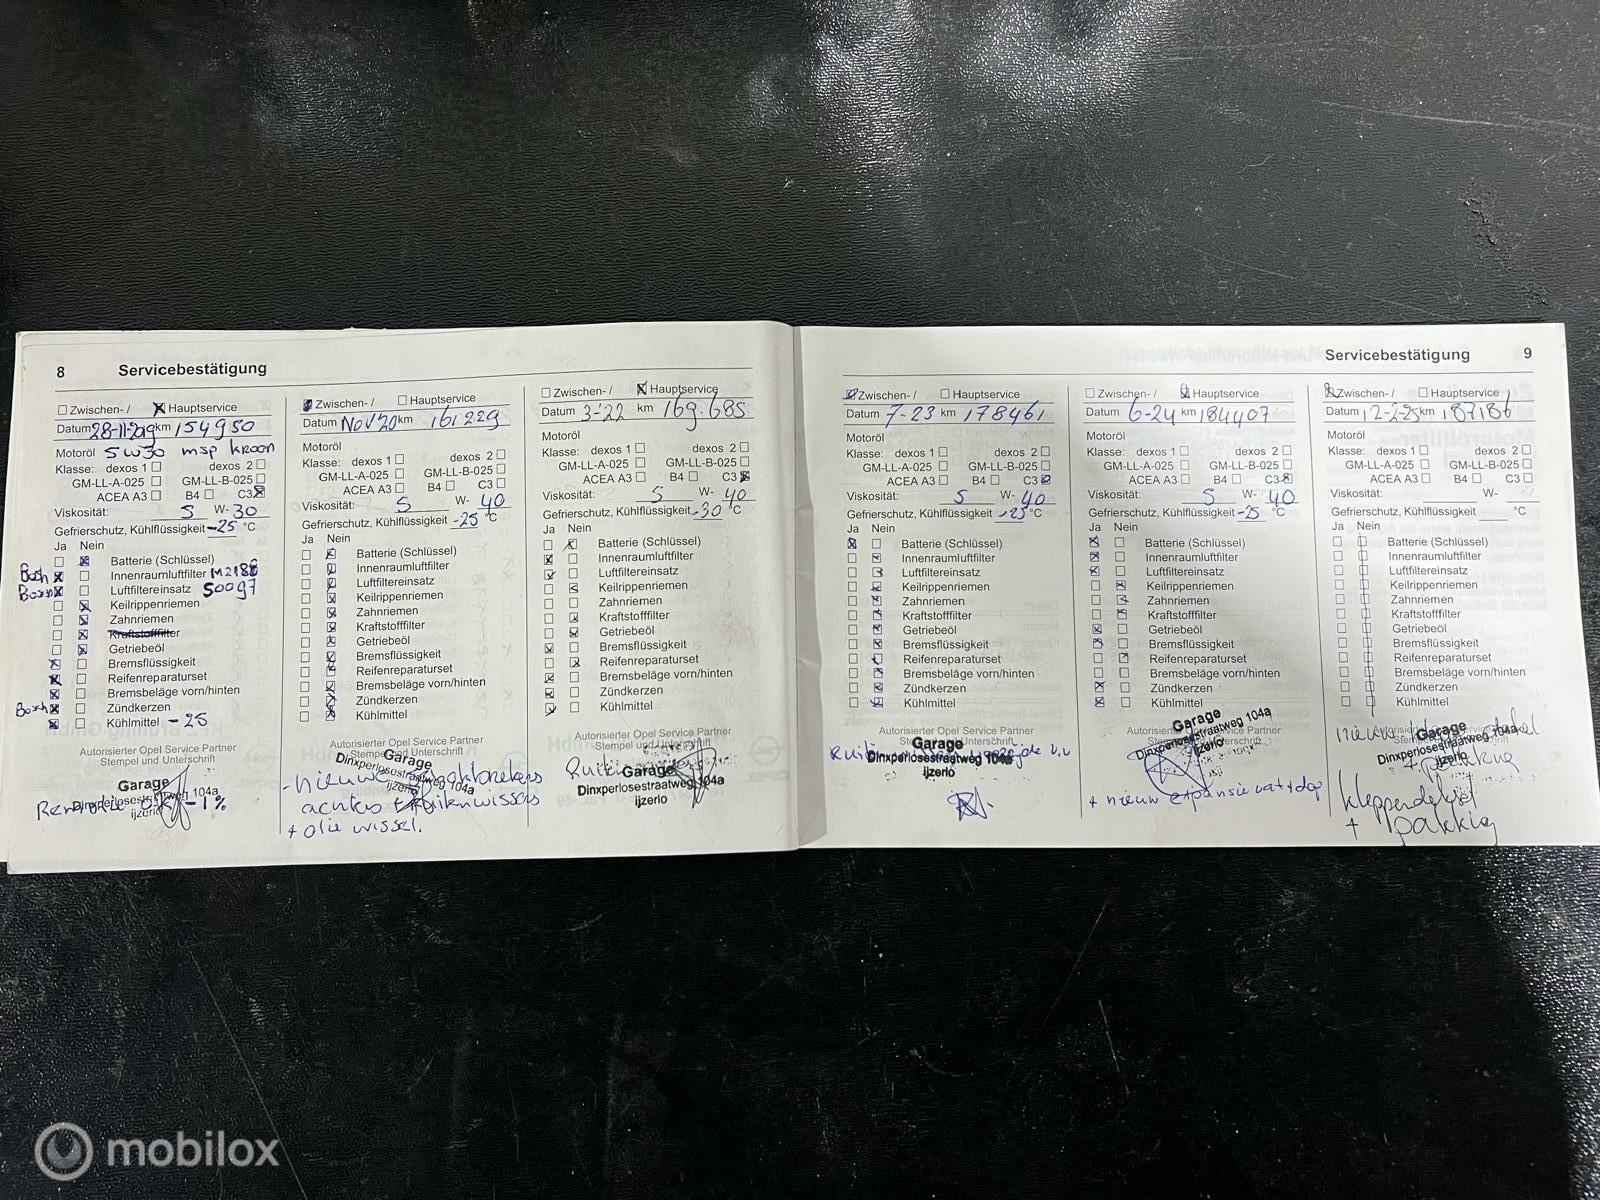 8 Servicebestätigung
☐ Zwischen- / ☒ Hauptservice
Datum 28-11-2019 km 154950
Motoröl 5w30 msp kroon
Klasse: dexos 1 ☐ dexos 2 ☐
GM-LL-A-025 ☐ GM-LL-B-025 ☐
ACEA A3 ☐ B4 ☐ C3 ☒
Viskosität: 5 W- 30
Gefrierschutz, Kühlflüssigkeit -25 °C
Ja Nein
☐ ☒ Batterie (Schlüssel)
Bosch ☒ ☐ Innenraumluftfilter
Bosch ☒ ☐ Luftfiltereinsatz S0097
☐ ☒ Keilrippenriemen
☐ ☒ Zahnriemen
☐ ☒ Kraftstofffilter
☐ ☒ Getriebeöl
☒ ☐ Bremsflüssigkeit
☒ ☐ Reifenreparaturset
☒ ☐ Bremsbeläge vorn/hinten
Bosch ☒ ☐ Zündkerzen
☒ ☐ Kühlmittel -25
Autorisierter Opel Service Partner
Stempel und Unterschrift
Garage
Dinxperlosestraatweg 104a
ijzerlo
-1%
☒ Zwischen- / ☐ Hauptservice
Datum Nov '20 km 161229
Motoröl
Klasse: dexos 1 ☐ dexos 2 ☐
GM-LL-A-025 ☐ GM-LL-B-025 ☐
ACEA A3 ☐ B4 ☐ C3 ☐
Viskosität: 5 W- 40
Gefrierschutz, Kühlflüssigkeit -25 °C
Ja Nein
☐ ☒ Batterie (Schlüssel)
☐ ☒ Innenraumluftfilter
☐ ☒ Luftfiltereinsatz
☐ ☒ Keilrippenriemen
☐ ☒ Zahnriemen
☐ ☒ Kraftstofffilter
☐ ☒ Getriebeöl
☐ ☒ Bremsflüssigkeit
☐ ☒ Reifenreparaturset
☐ ☒ Bremsbeläge vorn/hinten
☐ ☒ Zündkerzen
☐ ☒ Kühlmittel
Autorisierter Opel Service Partner
Stempel und Unterschrift
Garage
Dinxperlosestraatweg 104a
ijzerlo
- nieuwe
achter + ruitenwissers
+ olie wissel.
☐ Zwischen- / ☒ Hauptservice
Datum 3-22 km 169.685
Motoröl
Klasse: dexos 1 ☐ dexos 2 ☐
GM-LL-A-025 ☐ GM-LL-B-025 ☐
ACEA A3 ☐ B4 ☐ C3 ☒
Viskosität: 5 W- 40
Gefrierschutz, Kühlflüssigkeit -30 °C
Ja Nein
☐ ☒ Batterie (Schlüssel)
☒ ☐ Innenraumluftfilter
☒ ☐ Luftfiltereinsatz
☐ ☒ Keilrippenriemen
☐ ☐ Zahnriemen
☐ ☒ Kraftstofffilter
☐ ☒ Getriebeöl
☒ ☐ Bremsflüssigkeit
☐ ☒ Reifenreparaturset
☒ ☐ Bremsbeläge vorn/hinten
☒ ☐ Zündkerzen
☒ ☐ Kühlmittel
Autorisierter Opel Service Partner
Stempel und Unterschrift
Garage
Dinxperlosestraatweg 104a
ijzerlo
Servicebestätigung 9
☒ Zwischen- / ☐ Hauptservice
Datum 7-23 km 178461
Motoröl
Klasse: dexos 1 ☐ dexos 2 ☐
GM-LL-A-025 ☐ GM-LL-B-025 ☐
ACEA A3 ☐ B4 ☐ C3 ☒
Viskosität: 5 W- 40
Gefrierschutz, Kühlflüssigkeit -25 °C
Ja Nein
☒ ☐ Batterie (Schlüssel)
☐ ☒ Innenraumluftfilter
☐ ☒ Luftfiltereinsatz
☐ ☒ Keilrippenriemen
☐ ☒ Zahnriemen
☐ ☒ Kraftstofffilter
☐ ☒ Getriebeöl
☐ ☒ Bremsflüssigkeit
☐ ☒ Reifenreparaturset
☐ ☒ Bremsbeläge vorn/hinten
☐ ☒ Zündkerzen
☐ ☒ Kühlmittel
Autorisierter Opel Service Partner
Stempel und Unterschrift
Garage
Dinxperlosestraatweg 104a
ijzerlo
☐ Zwischen- / ☒ Hauptservice
Datum 6-24 km 184407
Motoröl
Klasse: dexos 1 ☐ dexos 2 ☐
GM-LL-A-025 ☐ GM-LL-B-025 ☐
ACEA A3 ☐ B4 ☐ C3 ☒
Viskosität: 5 W- 40
Gefrierschutz, Kühlflüssigkeit -25 °C
Ja Nein
☒ ☐ Batterie (Schlüssel)
☒ ☐ Innenraumluftfilter
☒ ☐ Luftfiltereinsatz
☐ ☒ Keilrippenriemen
☐ ☒ Zahnriemen
☐ ☒ Kraftstofffilter
☒ ☐ Getriebeöl
☒ ☐ Bremsflüssigkeit
☐ ☒ Reifenreparaturset
☐ ☐ Bremsbeläge vorn/hinten
☒ ☐ Zündkerzen
☒ ☐ Kühlmittel
Autorisierter Opel Service Partner
Stempel und Unterschrift
Garage
Dinxperlosestraatweg 104a
ijzerlo
+ nieuw expansie vat + dop
☒ Zwischen- / ☐ Hauptservice
Datum 12-2-25 km 187186
Motoröl
Klasse: dexos 1 ☐ dexos 2 ☐
GM-LL-A-025 ☐ GM-LL-B-025 ☐
ACEA A3 ☐ B4 ☐ C3 ☐
Viskosität: W-
Gefrierschutz, Kühlflüssigkeit °C
Ja Nein
☐ ☐ Batterie (Schlüssel)
☐ ☐ Innenraumluftfilter
☐ ☐ Luftfiltereinsatz
☐ ☐ Keilrippenriemen
☐ ☐ Zahnriemen
☐ ☐ Kraftstofffilter
☐ ☐ Getriebeöl
☐ ☐ Bremsflüssigkeit
☐ ☐ Reifenreparaturset
☐ ☐ Bremsbeläge vorn/hinten
☐ ☐ Zündkerzen
☐ ☐ Kühlmittel
Autorisierter Opel Service Partner
Stempel und Unterschrift
Garage
Dinxperlosestraatweg 104a
ijzerlo
kleppendeksel
+ pakking
mobilox